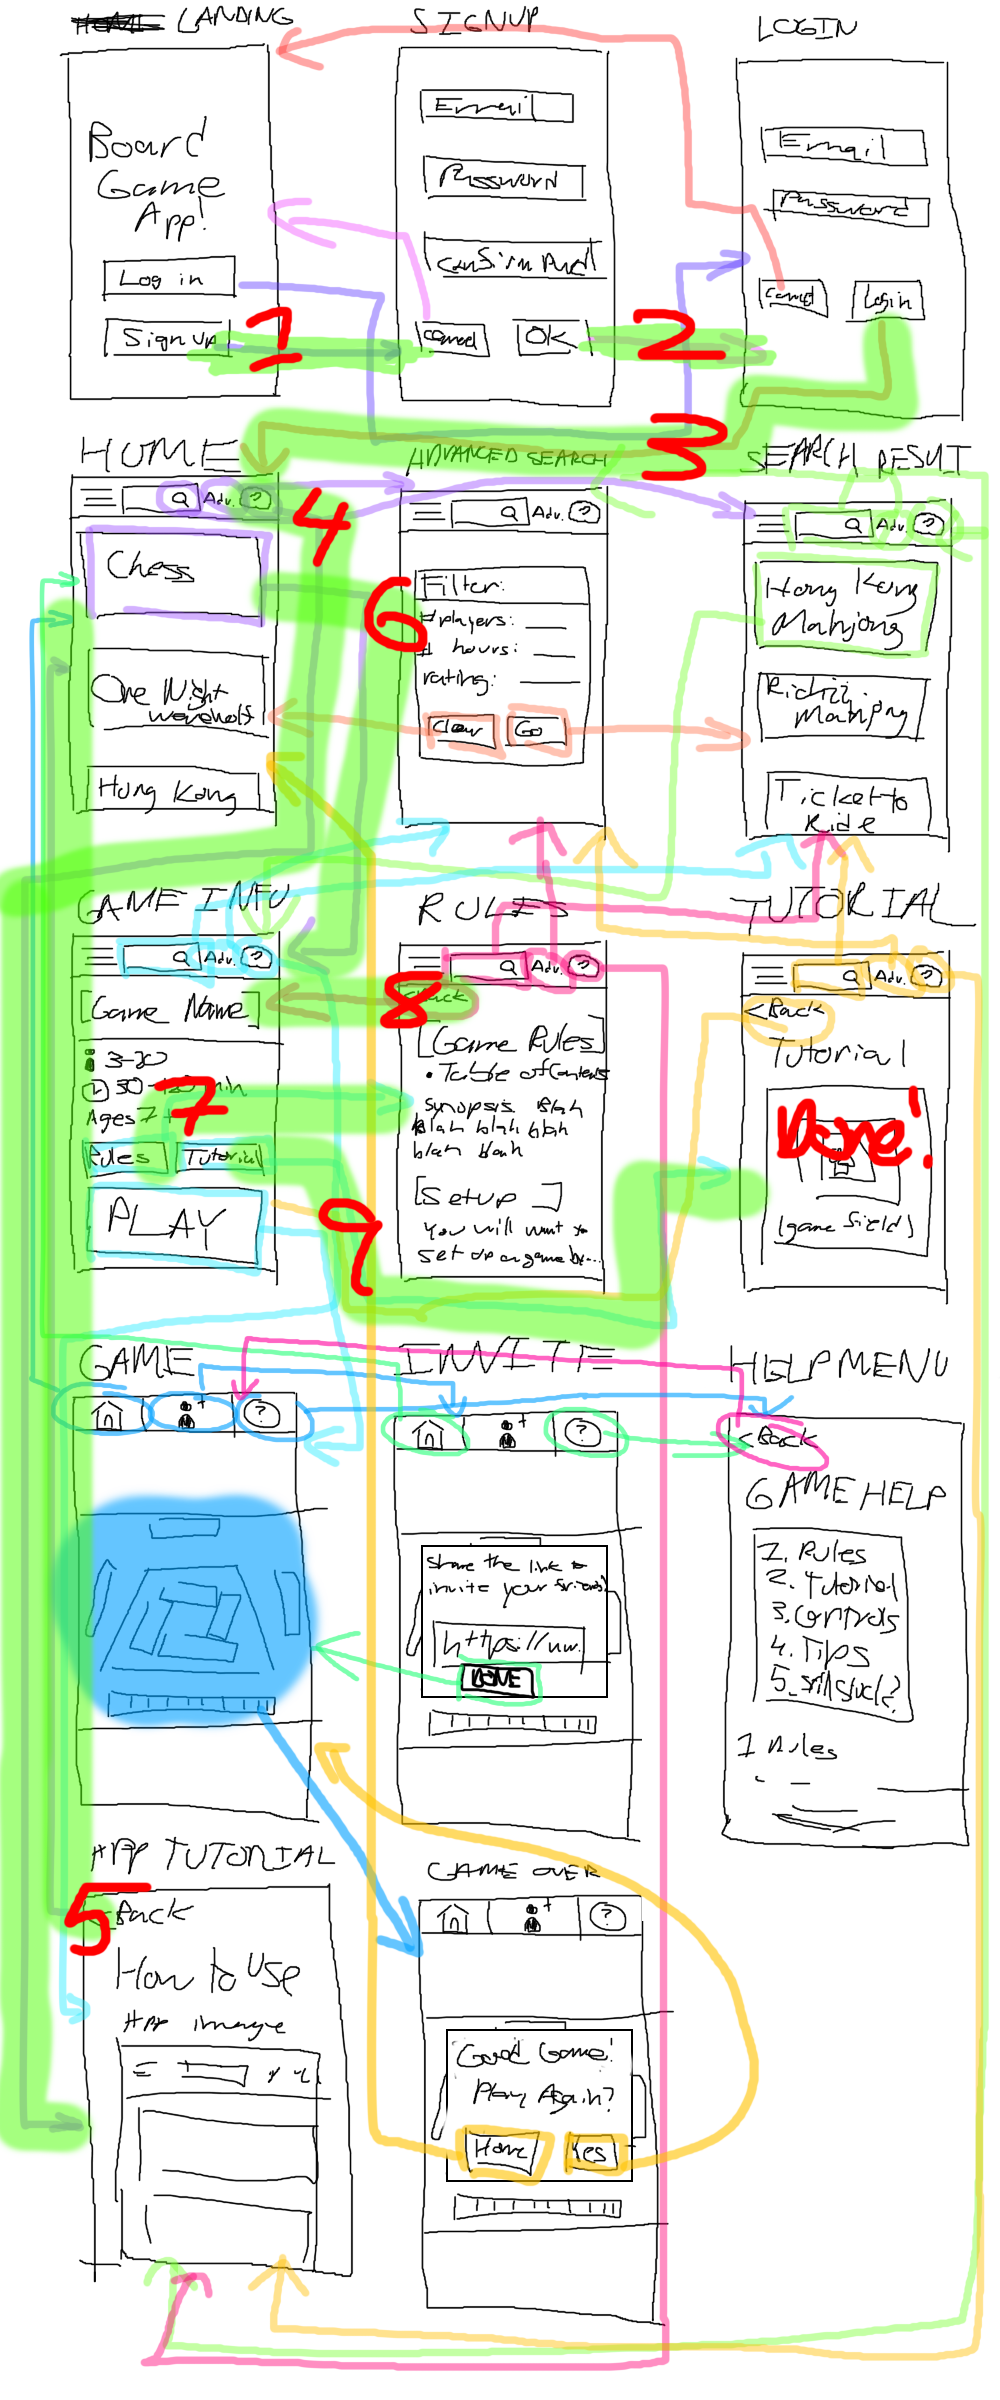 LANDING
SIGNUP
LOGIN
Board
Game
App!
Log in
Sign Up
Email
Password
Confirm Pwd
Cancel
OK
Email
Password
Cancel
Login
1
2
3
HOME
ADVANCED SEARCH
SEARCH RESULT
Adv. ?
Chess
One Night
werewolf
Hong Kong
4
Adv. ?
Filter:
# players:
# hours:
rating:
Clear
Go
6
Adv. ?
Hong Kong
Mahjong
Riichi
Mahjong
Ticket to
Ride
GAME INFO
RULES
TUTORIAL
Adv. ?
[Game Name]
3-20
min
Ages 7+
Rules
Tutorial
PLAY
7
Adv. ?
8
<Back
[Game Rules]
• Table of Contents
Synopsis Blah
Blah blah blah
blah blah
[Setup ]
You will want to
set up a game by...
9
Adv. ?
<Back
Tutorial
Done!
(game field)
GAME
INVITE
HELP MENU
+
?
+
?
Share the link to
invite your friends!
https://ww.
DONE
<Back
GAME HELP
1. Rules
2. Tutorial
3. Controls
4. Tips
5. Still stuck?
1 Rules
APP TUTORIAL
GAME OVER
5
<Back
How to Use
App image
+
?
Good Game!
Play Again?
Home
Yes